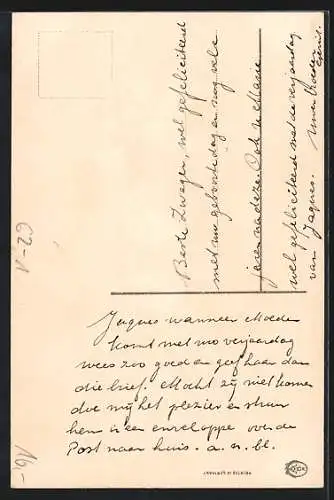 Beste Zwager, wel gefeliciteerd
met uw geboortedag en nog vele
jaren na deze. Ook u Marie
wel gefeliciteerd met de verjaardag
van Jaques.
Jaques wanneer Moeder
komt met uw verjaardag
wees zoo goed en geef haar dan
die brief. Mocht zij niet komen
doe mij het plezier en stuur
hen in een enveloppe over de
Post naar huis. a.u.bl.
62-1
16,-